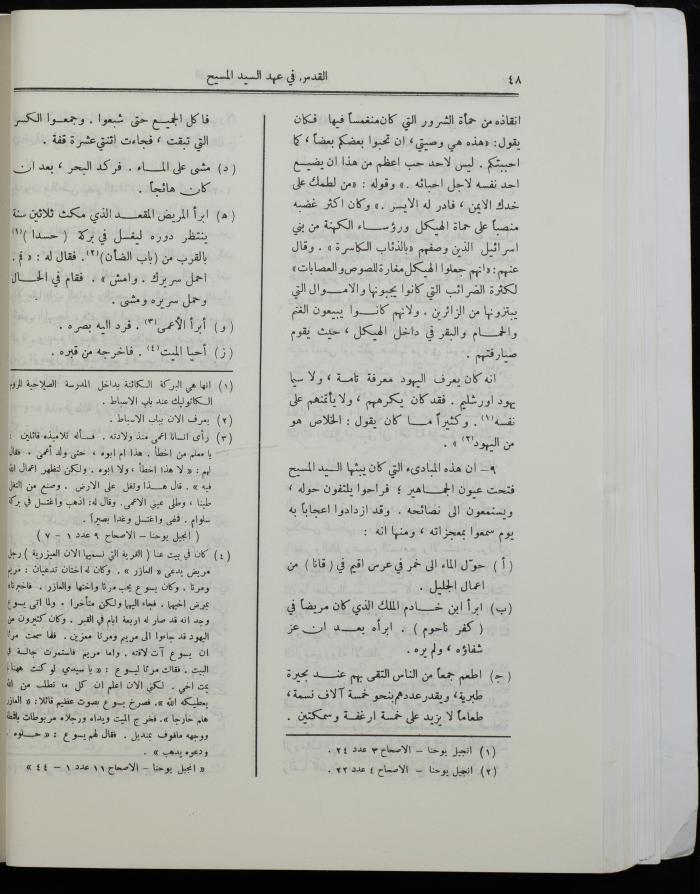 ٤٨
القدس في عهد السيد المسيح
انقاذه من حمأة الشرور التي كان منغمساً فيها فكان
يقول: «هذه هي وصيتي، ان تحبوا بعضكم بعضاً، كما
احببتكم . ليس لاحد حب اعظم من هذا ان يضيع
احد نفسه لاجل احبائه .» وقوله : «من لطمك على
خدك الايمن ، فادر له الايسر .» وكان اكثر غضبه
منصباً على حماة الهيكل ورؤساء الكهنة من بني
اسرائيل الذين وصفهم «بالذئاب الكاسرة» . وقال
عنهم: «انهم جعلوا الهيكل مغارة للصوص والعصابات»
لكثرة الضرائب التي كانوا يجبونها والاموال التي
يبتزونها من الزائرين . ولانهم كانوا يبيعون الغنم
والحمام والبقر في داخل الهيكل ، حيث يقوم
صيارفتهم .
انه كان يعرف اليهود معرفة تامة ، ولا سيما
يهود اورشليم . فقد كان يكرههم ، ولا يأتمنهم على
نفسه(١) . وكثيراً ما كان يقول : الخلاص هو
من اليهود(٢)» .
٩ – ان هذه المبادىء التي كان يبثها السيد المسيح
فتحت عيون الجماهير ؛ فراحوا يلتفون حوله ،
ويستمعون الى نصائحه . وقد ازدادوا اعجاباً به
يوم سمعوا بمعجزاته ، ومنها انه :
(أ) حوّل الماء الى خمر في عرس اقيم في (قانا) من
اعمال الجليل .
(ب) ابرأ ابن خادم الملك الذي كان مريضاً في
(كفر ناحوم) . ابرأه بعد ان عز
شفاؤه ، ولم يره .
(ج) اطعم جمعاً من الناس التقى بهم عند بحيرة
طبرية، ويقدر عددهم بنحو خمسة آلاف نسمة،
طعاماً لا يزيد على خمسة ارغفة وسمكتين .
(١) انجيل يوحنا – الاصحاح ٣ عدد ٢٤ .
(٢) انجيل يوحنا – الاصحاح ٤ عدد ٢٢ .
فاكل الجميع حتى شبعوا . وجمعوا الكسر
التي تبقت ، فجاءت اثنتي عشرة قفة .
(د) مشى على الماء . فركد البحر ، بعد ان
كان هائجاً .
(ه) ابرأ المريض المقعد الذي مكث ثلاثين سنة
ينتظر دوره ليغسل في بركة (حسدا)(١)
بالقرب من (باب الضأن)(٢). فقال له : «قم .
احمل سريرك . وامش» . فقام في الحال
وحمل سريره ومشى .
(و) أبرأ الأعمى(٣) . فرد اليه بصره .
(ز) أحيا الميت(٤) . فاخرجه من قبره .
(١) انها هي البركة الكائنة بداخل المدرسة الصلاحية للروم
الكاثوليك عند باب الاسباط .
(٢) يعرف الان بباب الاسباط .
(٣) رأى انسانا اعمى منذ ولادته . فسأله تلاميذه قائلين :
يا معلم من اخطأ . هذا ام ابوه ، حتى ولد أعمى . فقال
لهم : «لا هذا اخطأ ، ولا ابوه . ولكن لتظهر اعمال الله
فيه» . قال هذا وتفل على الارض . وصنع من التفل
طينا ، وطلى عيني الاعمى. وقال له: اذهب واغتسل في بركة
سلوام . فمضى واغتسل وغدا بصيراً .
(انجيل يوحنا – الاصحاح ٩ عدد ١ – ٧)
(٤) كان في بيت عنا (القرية التي نسميها الان العيزرية) رجل
مريض يدعى «العازر» . وكان له اختان تدعيان : مريم
ومرتا . وكان يسوع يحب مرتا واختها والعازر . فاخبرتاه
بمرض اخيهما . فجاء اليهما ولكن متأخرا . ولما اتى يسوع
وجد انه قد صار له اربعة ايام في القبر . وكان كثيرون من
اليهود قد جاءوا الى مريم ومرتا معزين . فلما سمعت مرتا
ان يسوع آت لاقته . واما مريم فاستمرت جالسة في
البيت . فقالت مرتا ليسوع : «يا سيدي لو كنت ههنا لم
يمت اخي . لكني الان اعلم ان كل ما تطلب من الله
يعطيكه الله». فصرخ يسوع بصوت عظيم قائلا: «العازر
هلم خارجا». فخرج الميت ويداه ورجلاه مربوطات باقمطة
ووجهه ملفوف بمنديل . فقال لهم يسوع : «حلوه .
ودعوه يذهب» .
«انجيل يوحنا – الاصحاح ١١ عدد ١ – ٤٤»